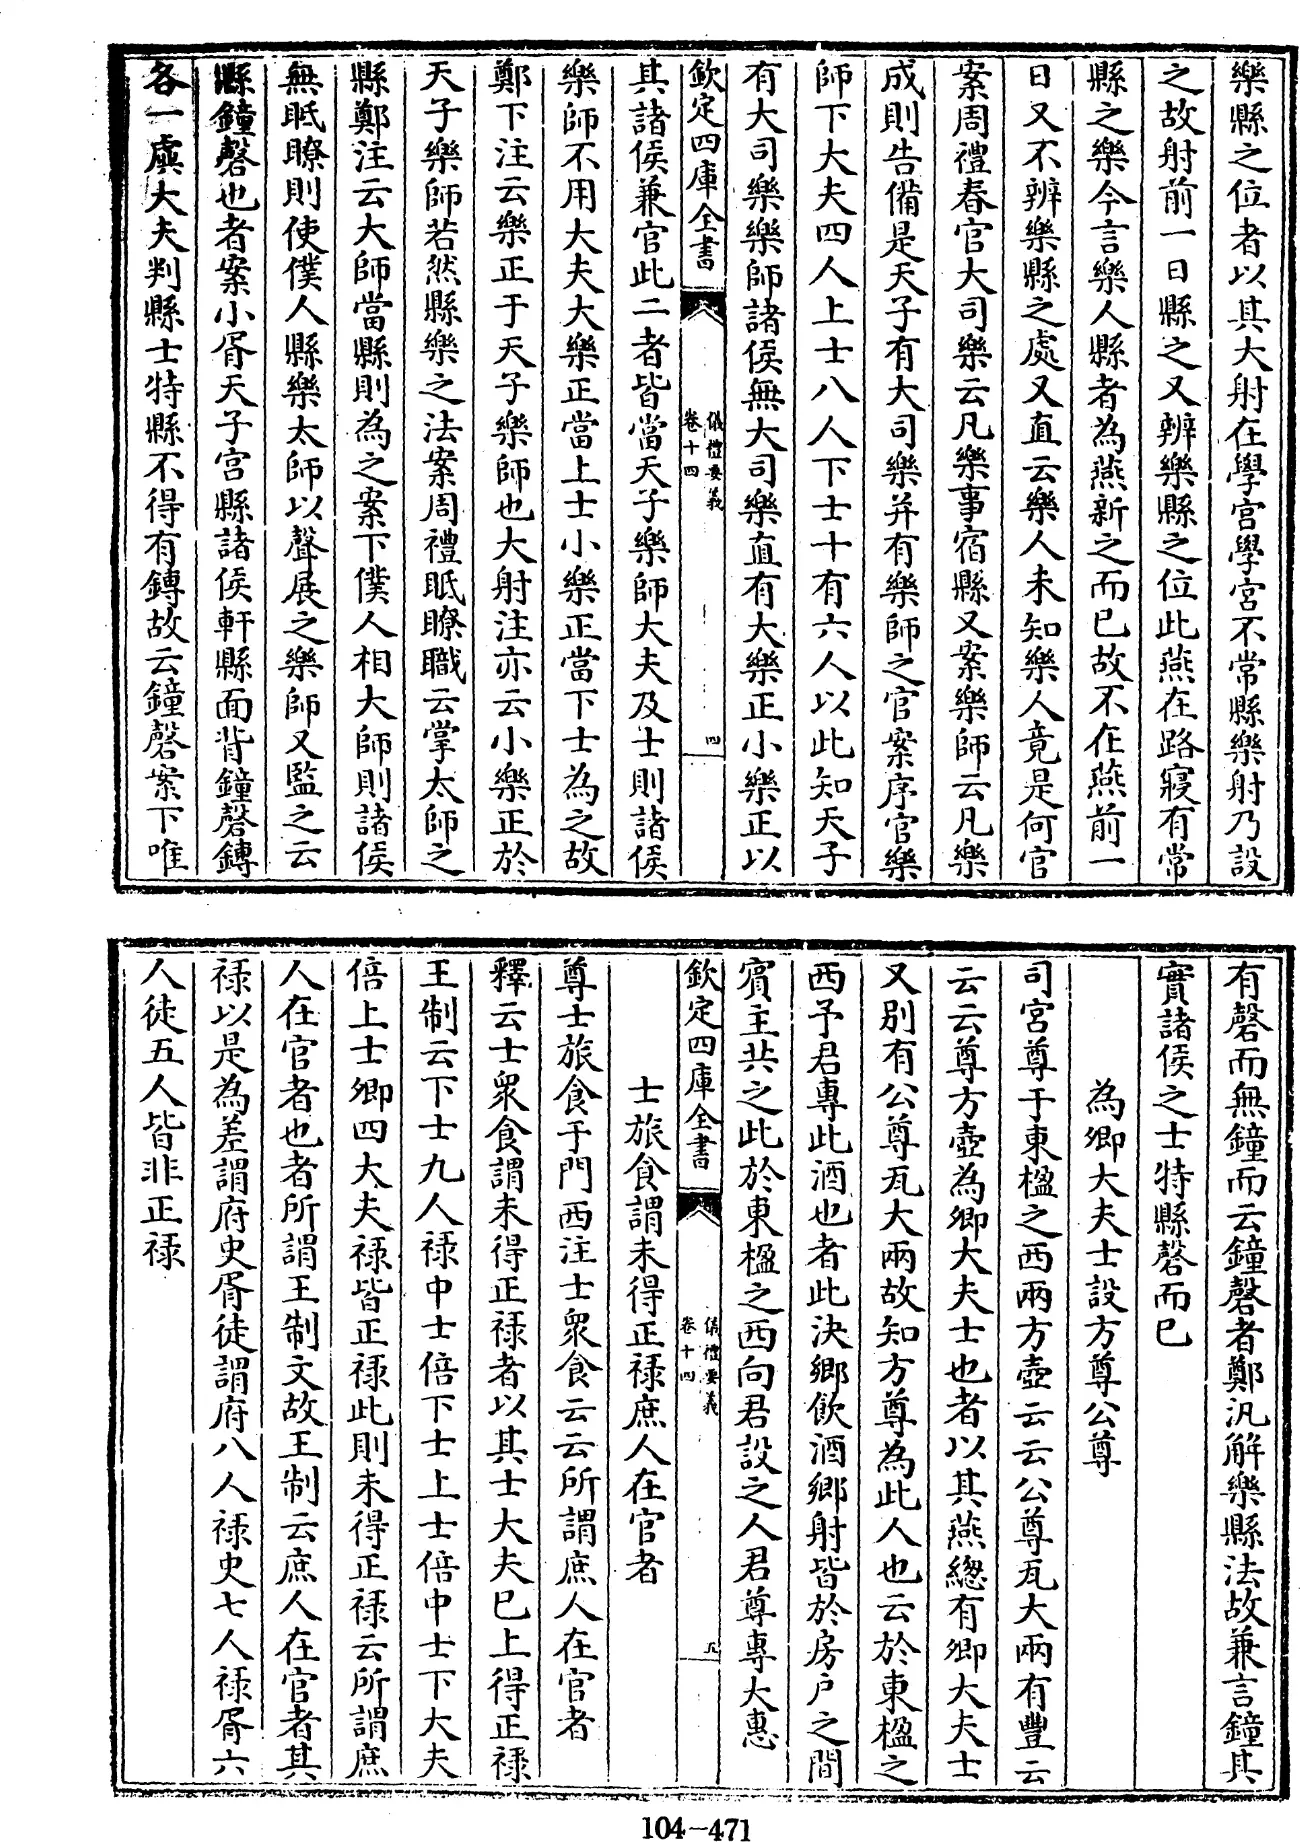 樂縣之位者以其大射在學宮學宮不常縣樂射乃設
之故射前一日縣之又辨樂縣之位此燕在路寢有常
縣之樂今言樂人縣者為燕新之而已故不在燕前一
日又不辨樂縣之處又直云樂人未知樂人竟是何官
案周禮春官大司樂云凡樂事宿縣又案樂師云凡樂
成則告備是天子有大司樂并有樂師之官案序官樂
師下大夫四人上士八人下士十有六人以此知天子
有大司樂樂師諸侯無大司樂直有大樂正小樂正以
欽定四庫全書
儀禮要義
卷十四
四
其諸侯兼官此二者皆當天子樂師大夫及士則諸侯
樂師不用大夫大樂正當上士小樂正當下士為之故
鄭下注云樂正于天子樂師也大射注亦云小樂正於
天子樂師若然縣樂之法案周禮眡瞭職云掌太師之
縣鄭注云大師當縣則為之案下僕人相大師則諸侯
無眡瞭則使僕人縣樂太師以聲展之樂師又監之云
縣鐘磬也者案小胥天子宮縣諸侯軒縣面皆鐘磬鎛
各一虡大夫判縣士特縣不得有鎛故云鐘磬案下唯
有磬而無鐘而云鐘磬者鄭汎解樂縣法故兼言鐘其
實諸侯之士特縣磬而已
為卿大夫士設方尊公尊
司宮尊于東楹之西兩方壺云云公尊瓦大兩有豐云
云云尊方壺為卿大夫士也者以其燕總有卿大夫士
又別有公尊瓦大兩故知方尊為此人也云於東楹之
西予君專此酒也者此決鄉飲酒鄉射皆於房户之間
賓主共之此於東楹之西向君設之人君尊專大惠
欽定四庫全書
儀禮要義
卷十四
五
士旅食謂未得正祿庶人在官者
尊士旅食于門西注士眾食云云所謂庶人在官者
釋云士眾食謂未得正祿者以其士大夫已上得正祿
王制云下士九人祿中士倍下士上士倍中士下大夫
倍上士卿四大夫祿皆正祿此則未得正祿云所謂庶
人在官者也者所謂王制文故王制云庶人在官者其
祿以是為差謂府史胥徒謂府八人祿史七人祿胥六
人徒五人皆非正祿
104-471